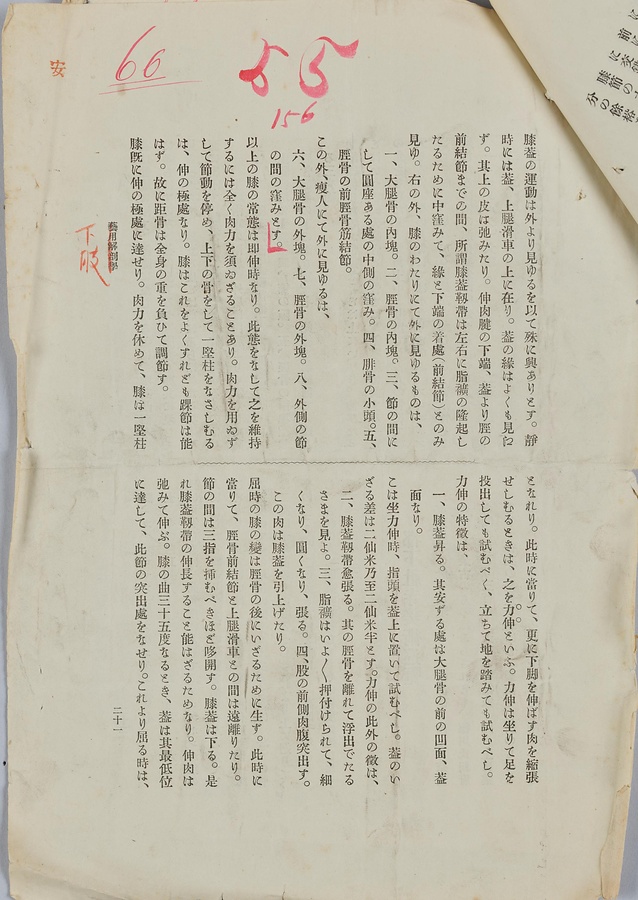 安
66
55
156
膝蓋の運動は外より見ゆるを以て殊に興ありとす。靜
時には蓋、上腿滑車の上に在り。蓋の緣はよくも見に
ず。其上の皮は弛みたり。伸肉腱の下端、蓋より脛の
前結節までの間、所謂膝蓋靱帶は左右に脂纊の隆起し
たるために中窪みて、緣と下端の着處(前結節)とのみ
見ゆ。右の外、膝のわたりにて外に見ゆるものは、
一、大腿骨の內塊。二、脛骨の內塊。三、節の間に
して圓座ある處の中側の窪み。四、腓骨の小頭。五、
脛骨の前脛骨筋結節。
この外、瘦人にて外に見ゆるは、
六、大腿骨の外塊。七、脛骨の外塊。八、外側の節
の間の窪みとす。
以上の膝の常態は卽伸時なり。此態をなして之を維持
するには全く肉力を須ゐざることあり。肉力を用ゐず
して節動を停め、上下の骨をして一堅柱をなさしむる
は、伸の極處なり。膝はこれをよくすれども踝節は能
はず。故に距骨は全身の重を負ひて調節す。
膝旣に伸の極處に達せり。肉力を休めて、膝は一堅柱
藝用解剖學
下肢
となれり。此時に當りて、更に下脚を伸ばす肉を縮張
せしむるときは、之を力伸といふ。力伸は坐りて足を
投出しても試むべく、立ちて地を踏みても試むべし。
力伸の特徵は、
一、膝蓋昇る。其安ずる處は大腿骨の前の凹面、蓋
面なり。
こは坐力伸時、指頭を蓋上に置いて試むべし。蓋のい
ざる差は二仙米乃至二仙米半とす。力伸の此外の徵は、
二、膝蓋靱帶愈張る。其の脛骨を離れて浮出でたる
さまを見よ。三、脂纊はいよ〱押付けられて、細
くなり、圓くなり、張る。四、股の前側肉腹突出す。
この肉は膝蓋を引上げたり。
屈時の膝の變は脛骨の後にいざるために生ず。此時に
當りて、脛骨前結節と上腿滑車との間は遠離りたり。
節の間は三指を挿むべきほど哆開す。膝蓋は下る。是
れ膝蓋靱帶の伸長すること能はざるためなり。伸肉は
弛みて伸ぶ。膝の曲三十五度なるとき、蓋は其最低位
に達して、此節の突出處をなせり。これより屈る時は、
二十一